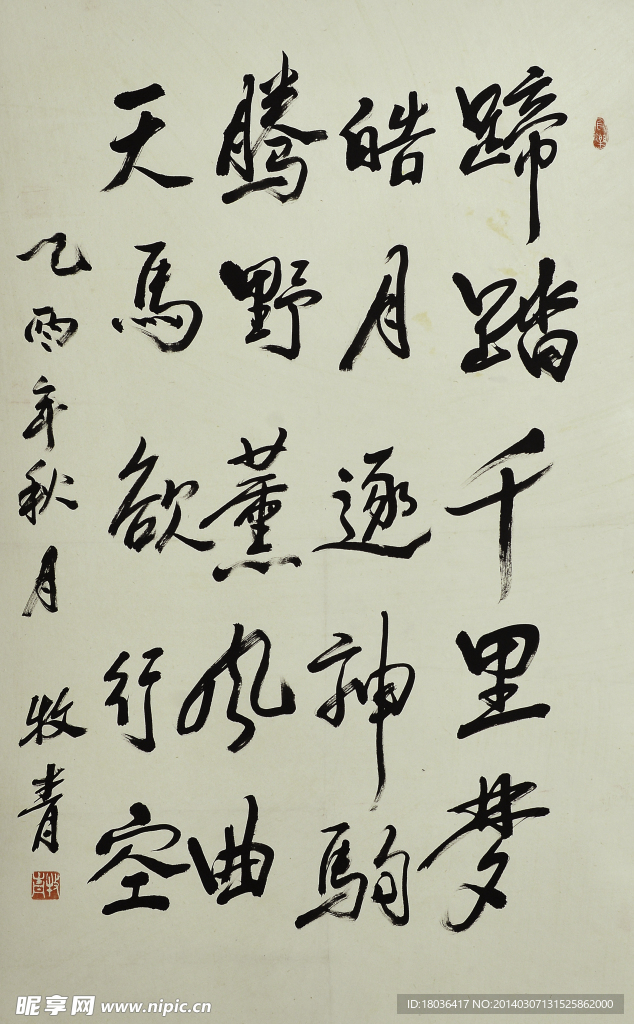 蹄踏千里梦
皓月逐神駒
騰野薰风曲
天馬欲行空
乙酉年秋月 牧青
牧青
昵享网 www.nipic.cn
ID:18036417 NO:20140307131525862000